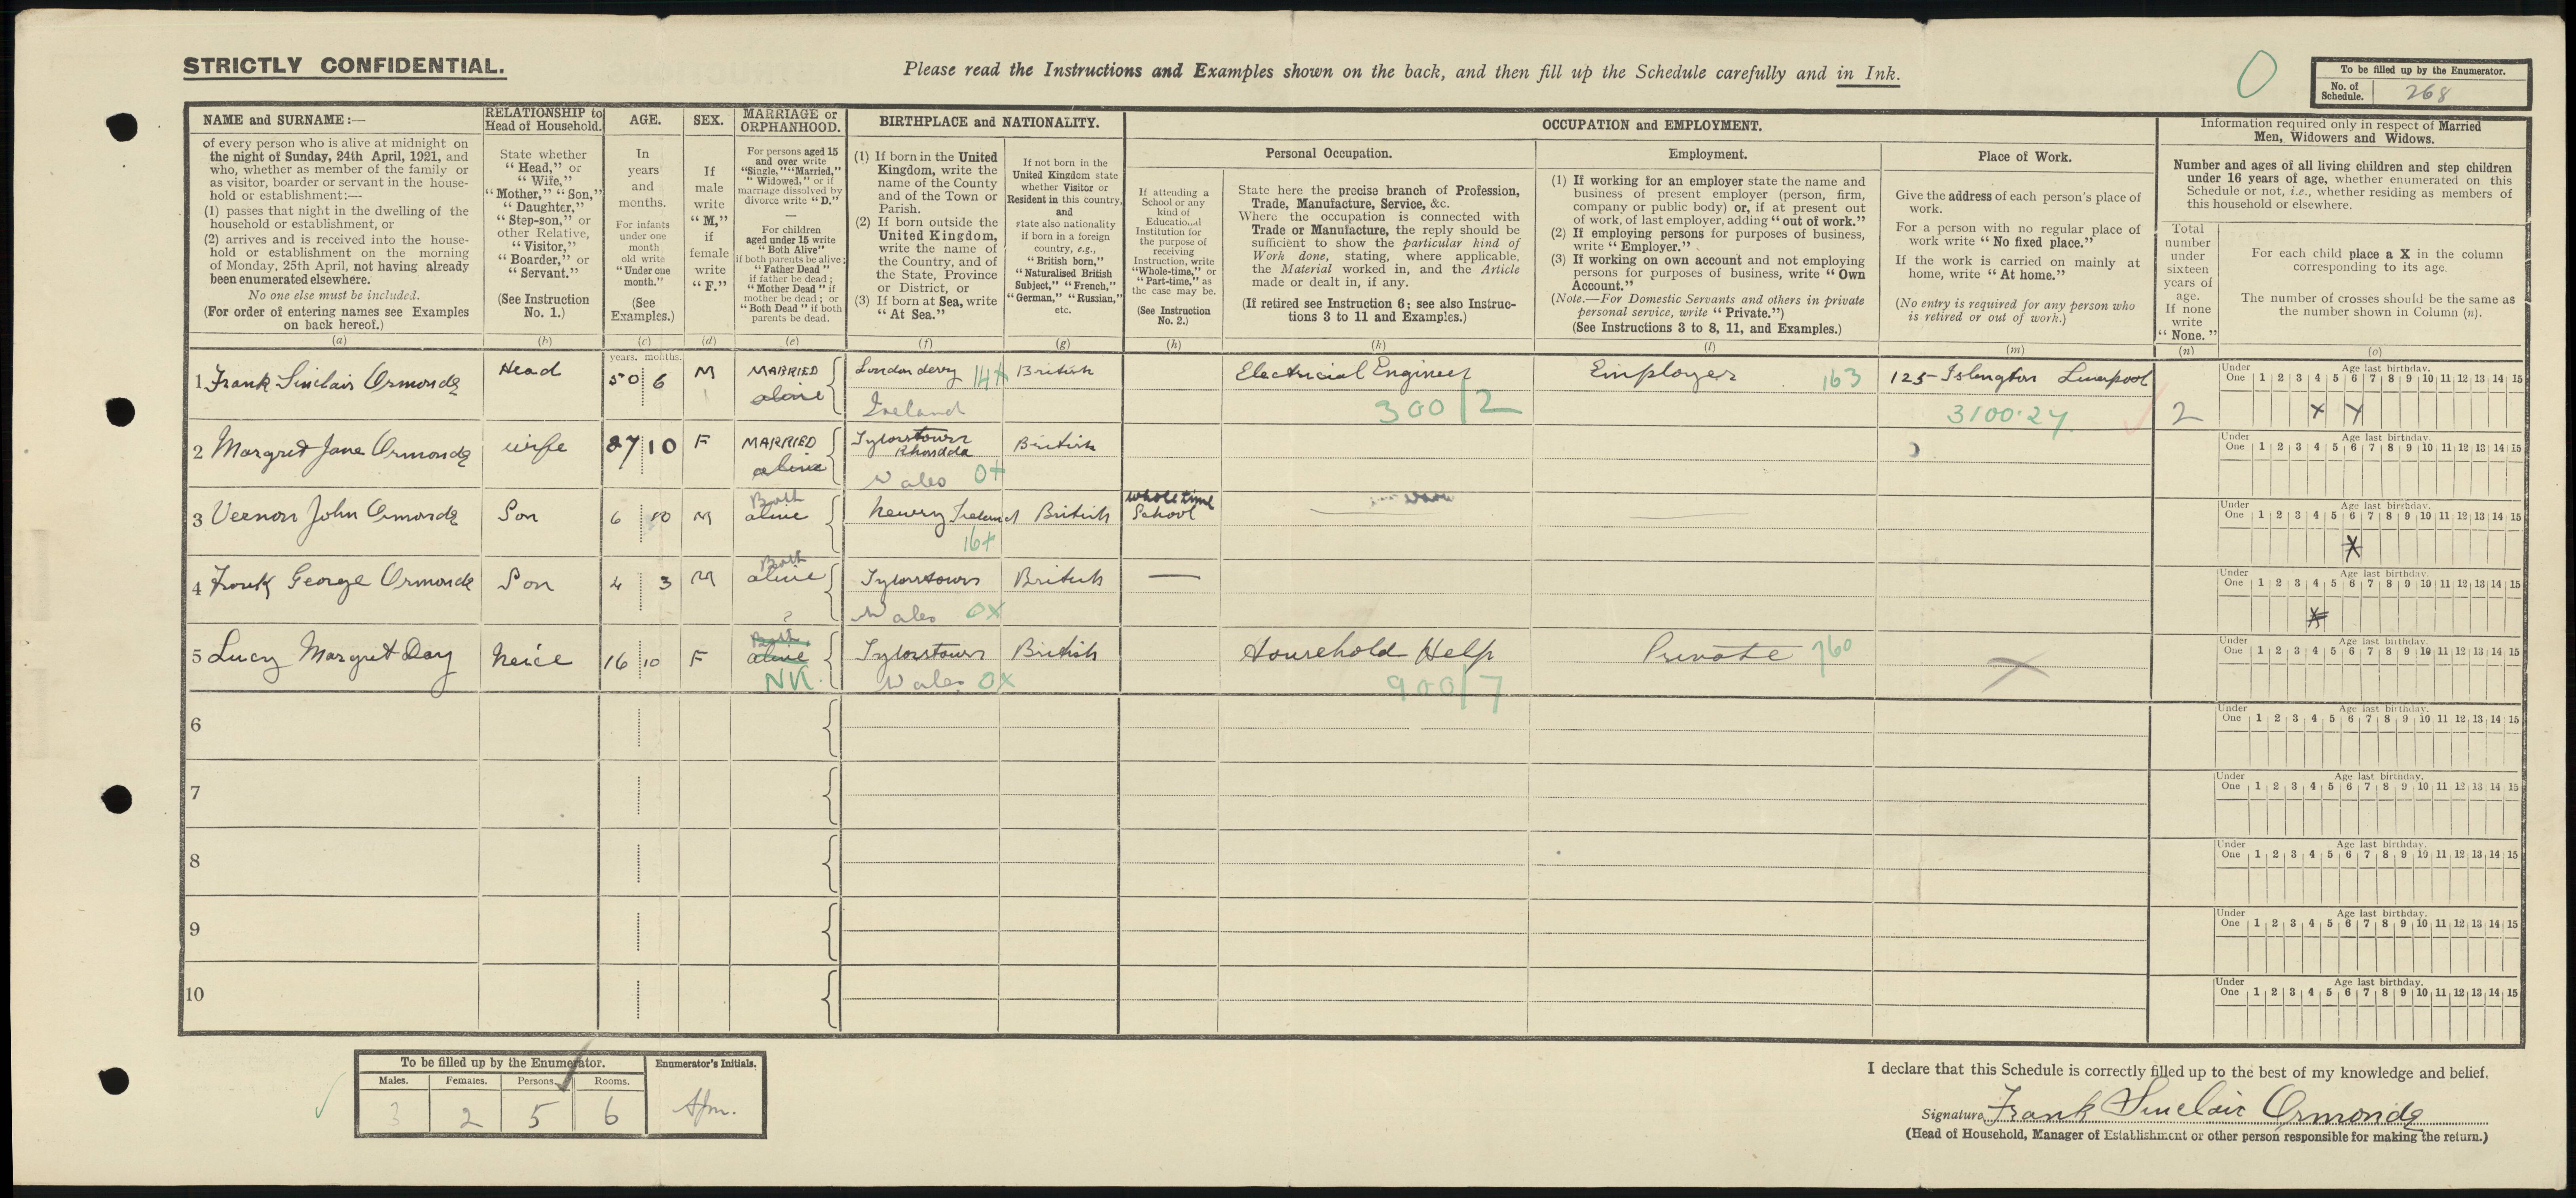 STRICTLY CONFIDENTIAL.
Please read the Instructions and Examples shown on the back, and then fill up the Schedule carefully and in Ink.
0
To be filled up by the Enumerator.
No. of Schedule. 268
NAME and SURNAME :—
of every person who is alive at midnight on
the night of Sunday, 24th April, 1921, and
who, whether as member of the family or
as visitor, boarder or servant in the house-
hold or establishment:—
(1) passes that night in the dwelling of the
household or establishment, or
(2) arrives and is received into the house-
hold or establishment on the morning
of Monday, 25th April, not having already
been enumerated elsewhere.
No one else must be included.
(For order of entering names see Examples
on back hereof.)
(a)
RELATIONSHIP to
Head of Household.
State whether
“Head,” or
“Wife,”
“Mother,” “Son,”
“Daughter,”
“Step-son,” or
other Relative,
“Visitor,”
“Boarder,” or
“Servant.”
(See Instruction
No. 1.)
(b)
AGE.
In
years
and
months.
For infants
under one
month
old write
“Under one
month.”
(See
Examples.)
(c)
SEX.
If
male
write
“M,”
if
female
write
“F.”
(d)
MARRIAGE or
ORPHANHOOD.
For persons aged 15
and over write
“Single,” “Married,”
“Widowed,” or if
marriage dissolved by
divorce write “D.”
—
For children
aged under 15 write
“Both Alive”
if both parents be alive;
“Father Dead”
if father be dead;
“Mother Dead” if
mother be dead; or
“Both Dead” if both
parents be dead.
(e)
BIRTHPLACE and NATIONALITY.
(1) If born in the United
Kingdom, write the
name of the County
and of the Town or
Parish.
(2) If born outside the
United Kingdom,
write the name of
the Country, and of
the State, Province
or District, or
(3) If born at Sea, write
“At Sea.”
(f)
If not born in the
United Kingdom state
whether Visitor or
Resident in this country,
and
state also nationality
if born in a foreign
country, e.g.,
“British born,”
“Naturalised British
Subject,” “French,”
“German,” “Russian,”
etc.
(g)
OCCUPATION and EMPLOYMENT.
Personal Occupation.
If attending a
School or any
kind of
Educational
Institution for
the purpose of
receiving
Instruction, write
“Whole-time,” or
“Part-time,” as
the case may be.
(See Instruction
No. 2.)
(h)
State here the precise branch of Profession,
Trade, Manufacture, Service, &c.
Where the occupation is connected with
Trade or Manufacture, the reply should be
sufficient to show the particular kind of
Work done, stating, where applicable,
the Material worked in, and the Article
made or dealt in, if any.
(If retired see Instruction 6; see also Instruc-
tions 3 to 11 and Examples.)
(k)
Employment.
(1) If working for an employer state the name and
business of present employer (person, firm,
company or public body) or, if at present out
of work, of last employer, adding “out of work.”
(2) If employing persons for purposes of business,
write “Employer.”
(3) If working on own account and not employing
persons for purposes of business, write “Own
Account.”
(Note.—For Domestic Servants and others in private
personal service, write “Private.”)
(See Instructions 3 to 8, 11, and Examples.)
(l)
Place of Work.
Give the address of each person’s place of
work.
For a person with no regular place of
work write “No fixed place.”
If the work is carried on mainly at
home, write “At home.”
(No entry is required for any person who
is retired or out of work.)
(m)
Information required only in respect of Married
Men, Widowers and Widows.
Number and ages of all living children and step children
under 16 years of age, whether enumerated on this
Schedule or not, i.e., whether residing as members of
this household or elsewhere.
Total
number
under
sixteen
years of
age.
If none
write
“None.”
(n)
For each child place a X in the column
corresponding to its age.
The number of crosses should be the same as
the number shown in Column (n).
(o)
years. months.
1 Frank Sinclair Ormonde Head 50 6 M MARRIED alive Londonderry 14+ Ireland British Electricial Engineer 300/2 Employer 163 125 Islington Liverpool 3100.27 2
Under One 1 2 3 4 5 6 7 8 9 10 11 12 13 14 15 Age last birthday.
X X
2 Margret Jane Ormonde wife 27 10 F MARRIED alive Tylorstown Rhondda Wales 0+ British
Under One 1 2 3 4 5 6 7 8 9 10 11 12 13 14 15 Age last birthday.
3 Vernon John Ormonde Son 6 10 M Both alive Newry Ireland 16+ British whole time School
Under One 1 2 3 4 5 6 7 8 9 10 11 12 13 14 15 Age last birthday.
X
4 Frank George Ormonde Son 4 3 M Both alive ? Tylorstown Wales 0x British —
Under One 1 2 3 4 5 6 7 8 9 10 11 12 13 14 15 Age last birthday.
X
5 Lucy Margret Day Neice 16 10 F Both alive NK Tylorstown Wales 0x British Household Help 900/7 Private 760 X
Under One 1 2 3 4 5 6 7 8 9 10 11 12 13 14 15 Age last birthday.
6
Under One 1 2 3 4 5 6 7 8 9 10 11 12 13 14 15 Age last birthday.
7
Under One 1 2 3 4 5 6 7 8 9 10 11 12 13 14 15 Age last birthday.
8
Under One 1 2 3 4 5 6 7 8 9 10 11 12 13 14 15 Age last birthday.
9
Under One 1 2 3 4 5 6 7 8 9 10 11 12 13 14 15 Age last birthday.
10
Under One 1 2 3 4 5 6 7 8 9 10 11 12 13 14 15 Age last birthday.
To be filled up by the Enumerator.
Males. Females. Persons. Rooms.
3 2 5 6
Enumerator’s Initials.
I declare that this Schedule is correctly filled up to the best of my knowledge and belief.
Signature Frank Sinclair Ormonde
(Head of Household, Manager of Establishment or other person responsible for making the return.)